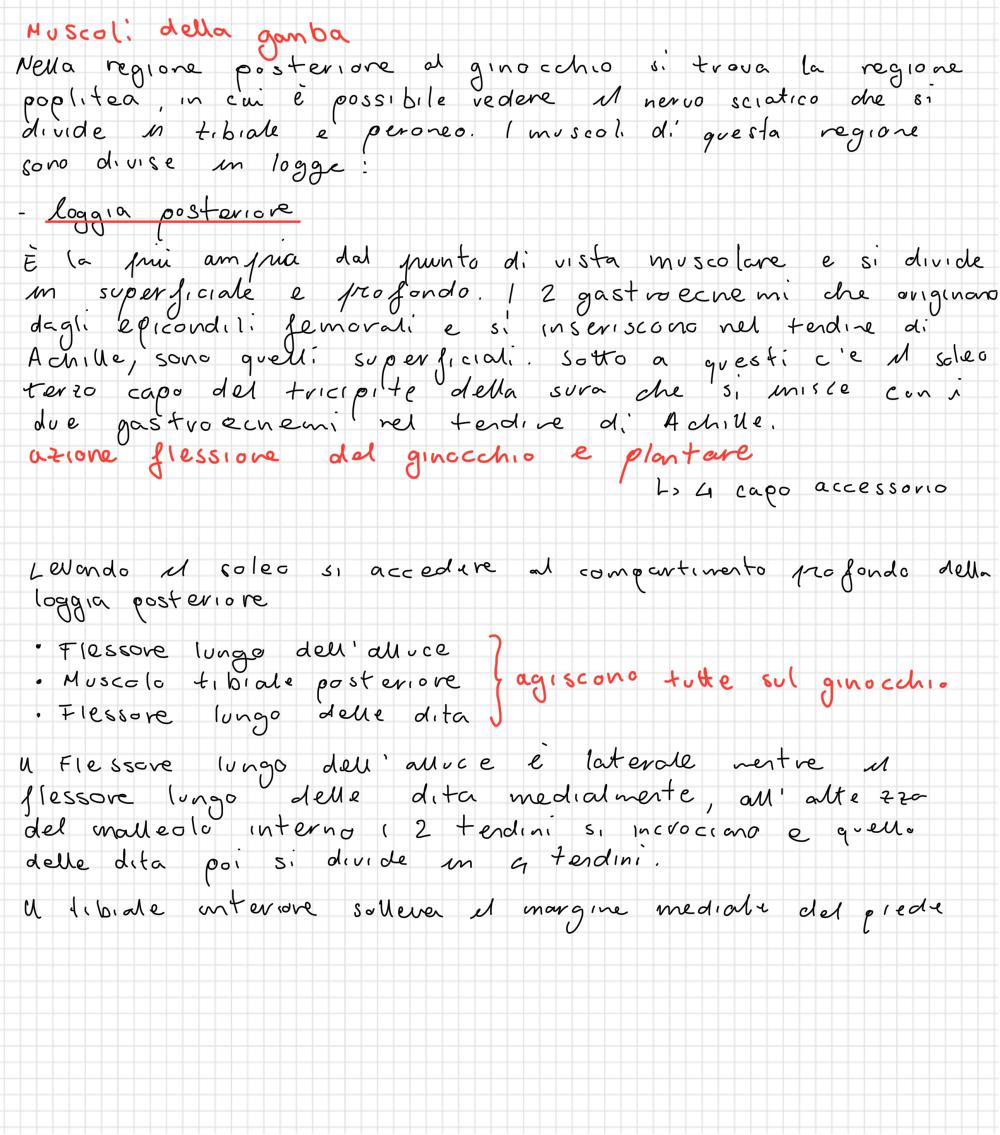 Muscoli della gamba
Nella regione posteriore al ginocchio si trova la regione
poplitea, in cui è possibile vedere il nervo sciatico che si
divide in tibiale e peroneo. I muscoli di questa regione
sono divise in logge:
- loggia posteriore
È la più ampia dal punto di vista muscolare e si divide
in superficiale e profondo. I 2 gastroecnemi che originano
dagli epicondili femorali e si inseriscono nel tendine di
Achille, sono quelli superficiali. Sotto a questi c'e il soleo
terzo capo del tricipite della sura che si unisce con i
due gastroecnemi nel tendine di Achille.
azione flessione del ginocchio e plantare
↳ 4 capo accessorio
Levando il soleo si accedere al compartimento profondo della
loggia posteriore
• Flessore lungo dell'alluce
• Muscolo tibiale posteriore
• Flessore lungo delle dita
} agiscono tutte sul ginocchio
Il Flessore lungo dell'alluce è laterale mentre il
flessore lungo delle dita medialmente, all'altezza
del malleolo interno i 2 tendini si incrociano e quello
delle dita poi si divide in 4 tendini.
Il tibiale anteriore solleva il margine mediale del piede